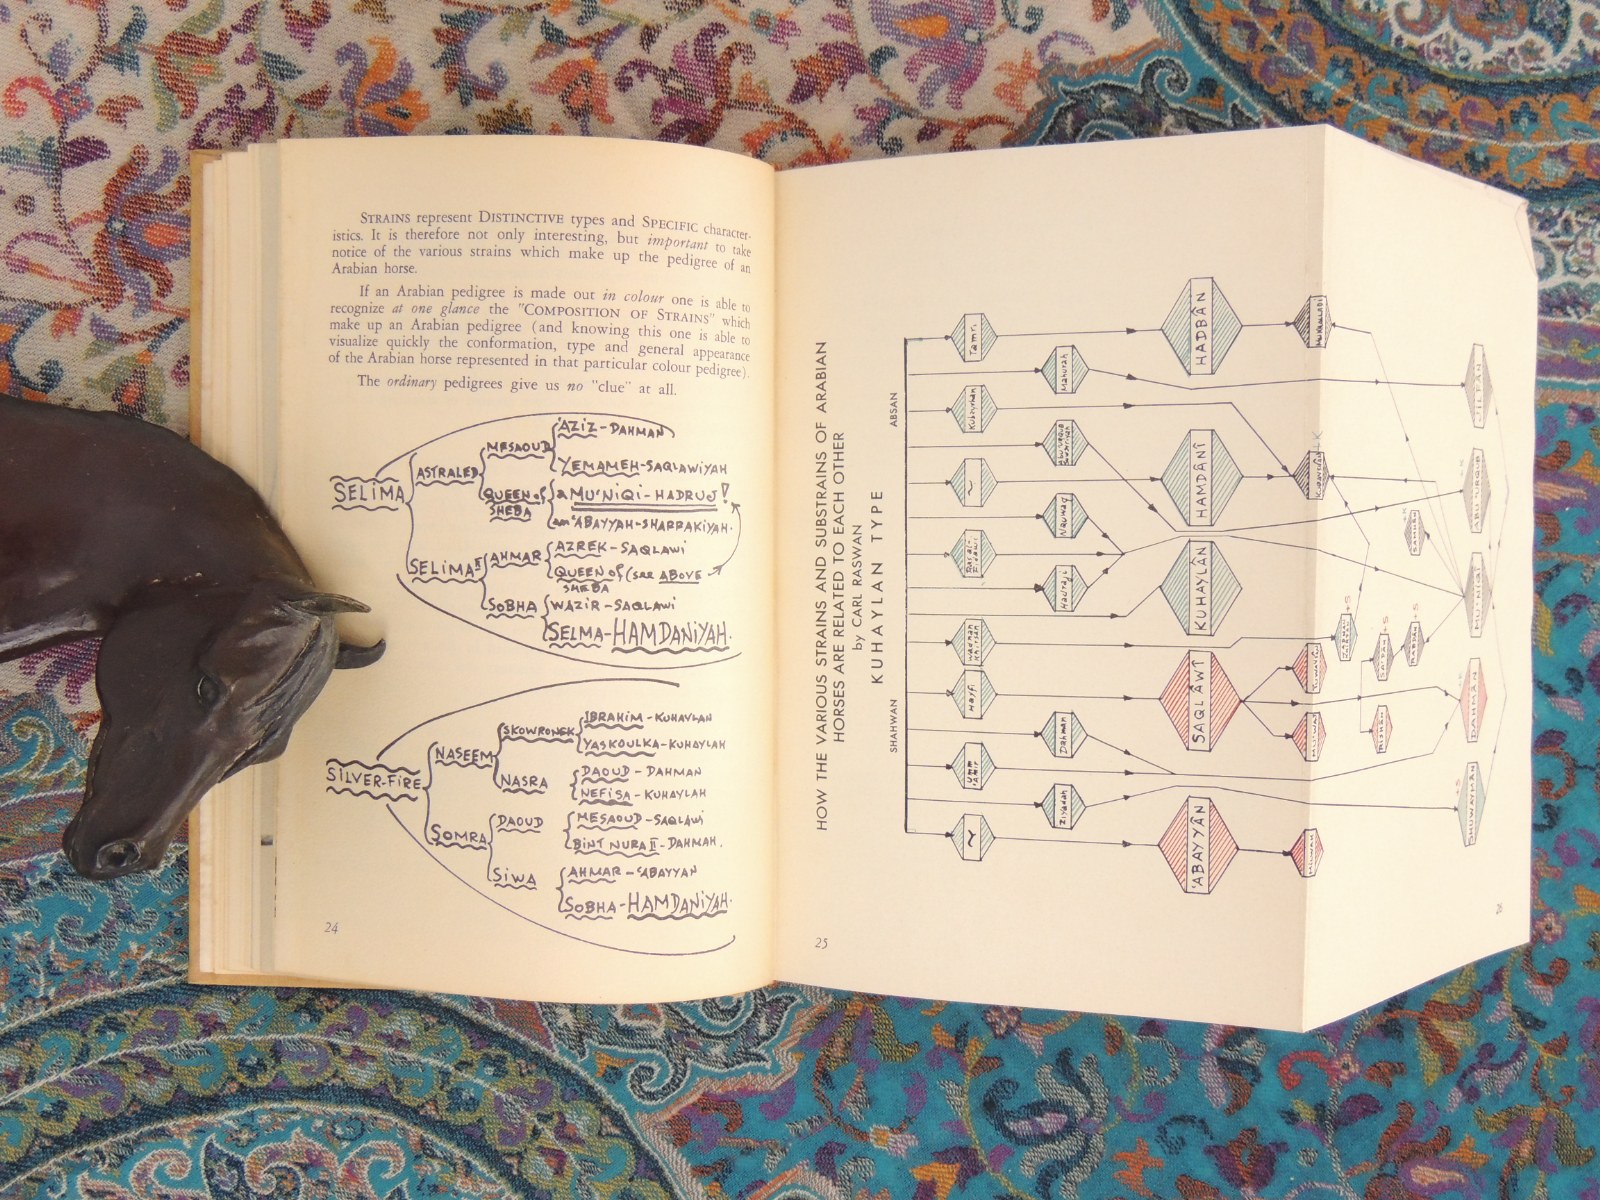 STRAINS represent DISTINCTIVE types and SPECIFIC character-
istics. It is therefore not only interesting, but important to take
notice of the various strains which make up the pedigree of an
Arabian horse.
If an Arabian pedigree is made out in colour one is able to
recognize at one glance the "COMPOSITION OF STRAINS" which
make up an Arabian pedigree (and knowing this one is able to
visualize quickly the conformation, type and general appearance
of the Arabian horse represented in that particular colour pedigree).
The ordinary pedigrees give us no "clue" at all.
SELIMA
ASTRALED
MESAOUD
'AZIZ-DAHMAN
YEMAMEH-SAQLAWIYAH
QUEEN of
SHEBA
a MU'NIQI-HADRUJ!
an 'ABAYYAH-SHARRAKIYAH.
SELIMA II
AHMAR
AZREK-SAQLAWI
QUEEN of (see ABOVE
SHEBA
SOBHA
WAZIR-SAQLAWI
SELMA-HAMDANIYAH.
SILVER-FIRE
NASEEM
SKOWRONEK
IBRAHIM-KUHAYLAN
YASKOULKA-KUHAYLAH
NASRA
DAOUD - DAHMAN
NEFISA-KUHAYLAH
SOMRA
DAOUD
MESAOUD-SAQLAWI
BINT NURA II-DAHMAH.
SIWA
AHMAR-'ABAYYAN
SOBHA-HAMDANIYAH.
24
HOW THE VARIOUS STRAINS AND SUBSTRAINS OF ARABIAN
HORSES ARE RELATED TO EACH OTHER
by CARL RASWAN
KUHAYLAN TYPE
SHAHWAN
ABSAN
Tamri
Mahurah
Nauwaq
Hayfi
Dahman
Ziyadah
HADBÂN
HAMDÂNÎ
KUHAYLÂN
SAQLÂWÎ
'ABAYYÂN
MU'NIQÎ
DAHMÂN
SHUWAYMÂN
RISHÂN
SA'DÂN
25
26